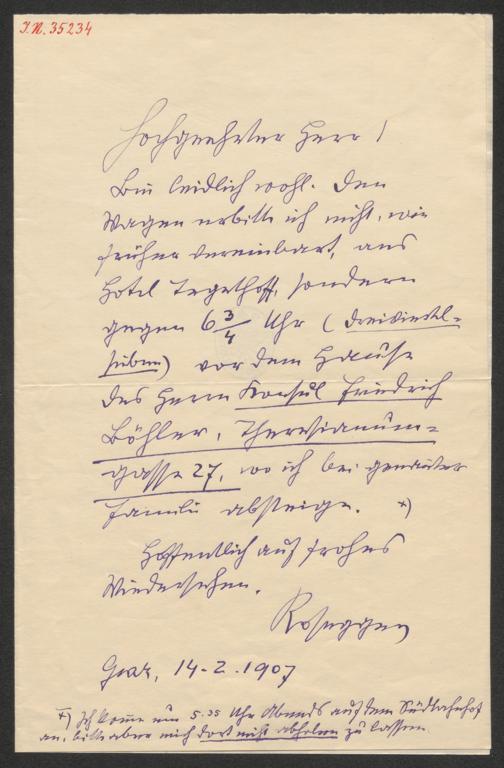 I.N. 35234
Hochgeehrter Herr!
Bin leidlich wohl. Den
Wagen erbitte ich nicht, wie
früher vereinbart, ans
Hotel Tegethoff, sondern
gegen 6 3/4 Uhr (dreiviertel-
sieben) vor dem Hause
des Herrn Konsul Friedrich
Böhler, Theresianum=
gasse 27, wo ich bei genannter
Familie absteige. x)
Hoffentlich auf frohes
Wiedersehen.
Rosegger
Graz, 14-2. 1907
x) Ich komme um 5.35 Uhr Abends auf dem Südbahnhof
an, bitte aber mich dort nicht abholen zu lassen.